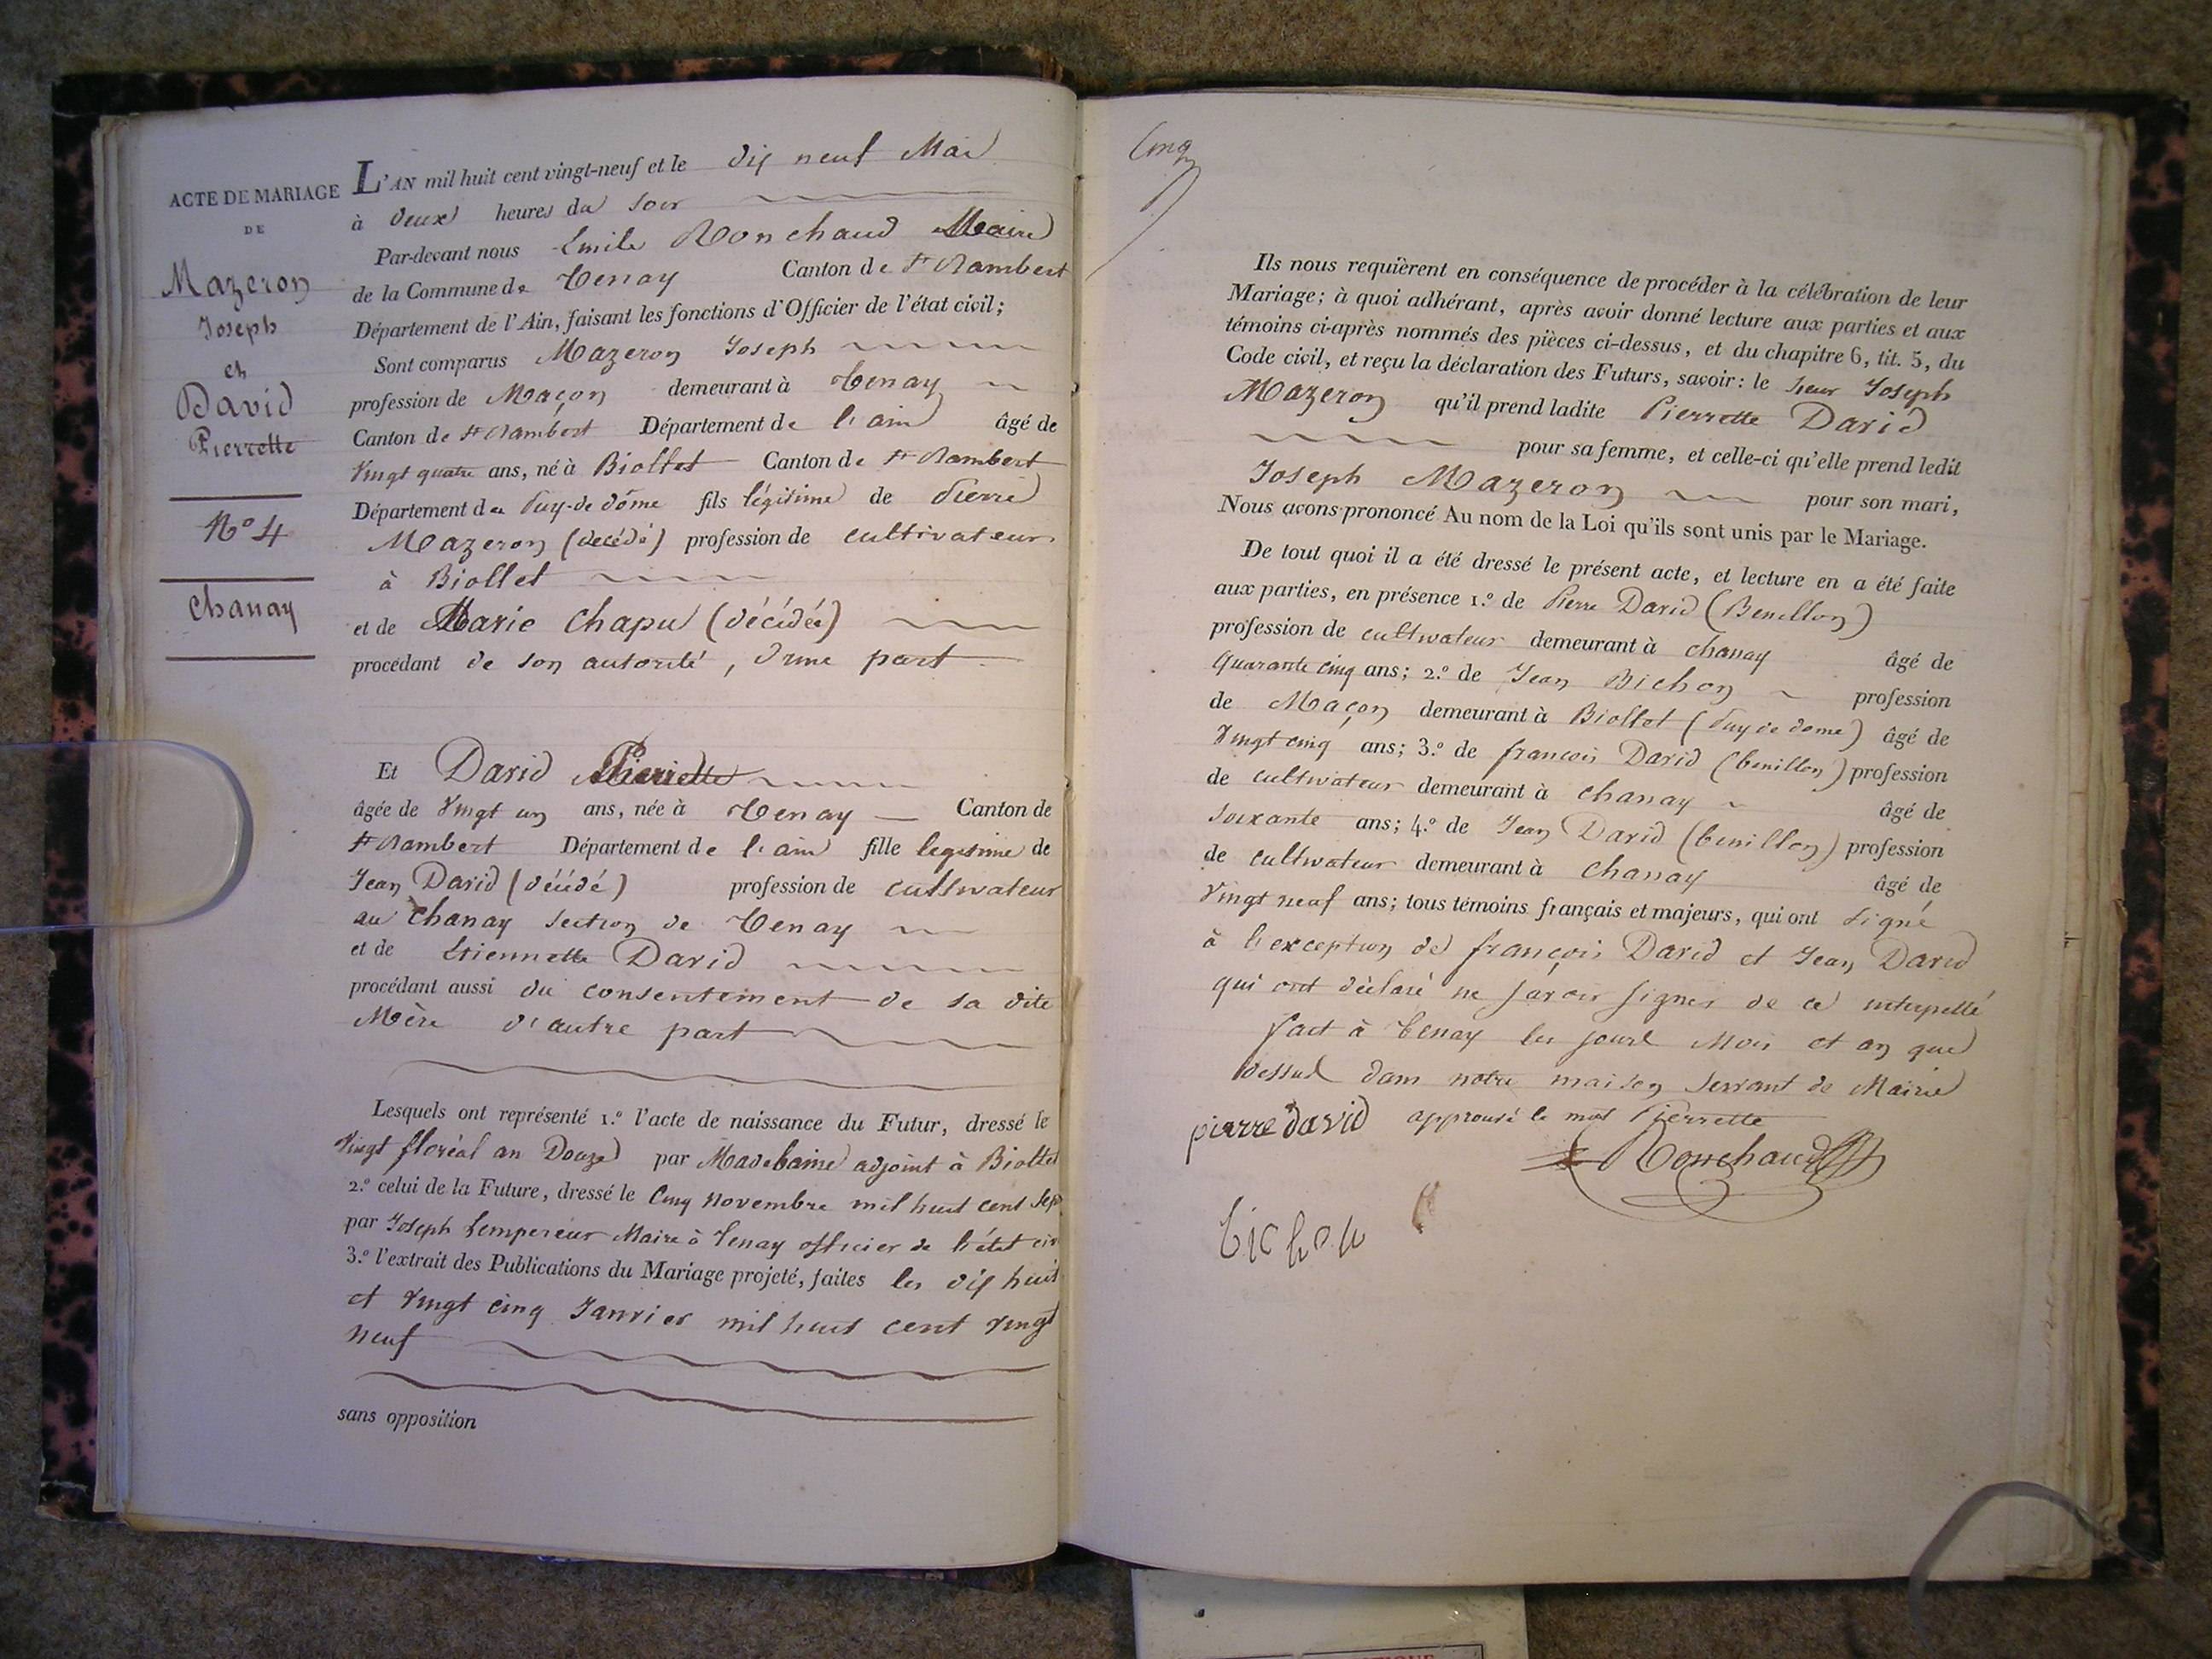 ACTE DE MARIAGE
DE
Mazeron
Joseph
et
David
Pierrette
N° 4
Chanay
L'AN mil huit cent vingt-neuf et le dix neuf Mai
à deux heures du soir
Par-devant nous Emile Ronchaud Maire
de la Commune de Tenay Canton de St Rambert
Département de l'Ain, faisant les fonctions d'Officier de l'état civil;
Sont comparus Mazeron Joseph
profession de Maçon demeurant à Tenay
Canton de St Rambert Département de l'ain âgé de
vingt quatre ans, né à Biollet Canton de St Rambert
Département de Puy-de dôme fils légitime de Pierre
Mazeron (décédé) profession de cultivateur
à Biollet
et de Marie Chapu (décédée)
procédant de son autorité, d'une part
Et David Pierrette
âgée de vingt un ans, née à Tenay Canton de
St Rambert Département de l'ain fille legitime de
Jean David (décédé) profession de cultivateur
au Chanay section de Tenay
et de Etiennette David
procédant aussi du consentement de sa dite
Mère d'autre part
Lesquels ont représenté 1.º l'acte de naissance du Futur, dressé le
vingt floréal an Douze par adjoint à Biollet
2.º celui de la Future, dressé le cinq novembre mil huit cent sept
par Joseph Lempereur Maire à Tenay officier de l'état civ
3.º l'extrait des Publications du Mariage projeté, faites les dix huit
et vingt cinq Janvier mil huit cent vingt
neuf
sans opposition
Cinq
Ils nous requièrent en conséquence de procéder à la célébration de leur
Mariage; à quoi adhérant, après avoir donné lecture aux parties et aux
témoins ci-après nommés des pièces ci-dessus, et du chapitre 6, tit. 5, du
Code civil, et reçu la déclaration des Futurs, savoir: le sieur Joseph
Mazeron qu'il prend ladite Pierrette David
pour sa femme, et celle-ci qu'elle prend ledit
Joseph Mazeron pour son mari,
Nous avons prononcé Au nom de la Loi qu'ils sont unis par le Mariage.
De tout quoi il a été dressé le présent acte, et lecture en a été faite
aux parties, en présence 1.º de Pierre David (Benillon)
profession de cultivateur demeurant à chanay âgé de
quarante cinq ans; 2.º de Jean Bichon profession
de Maçon demeurant à Biollet (Puy de dome) âgé de
vingt cinq ans; 3.º de françois David (benillon) profession
de cultivateur demeurant à chanay âgé de
soixante ans; 4.º de Jean David (benillon) profession
de cultivateur demeurant à chanay âgé de
vingt neuf ans; tous témoins français et majeurs, qui ont signé
à l'exception de françois David et Jean David
qui ont déclaré ne savoir signer de ce interpellé
fait à Tenay les jour Mois et an que
dessus dans notre maison servant de Mairie
pierre david approuvé le mot Pierrette
Ronchaud
bichon